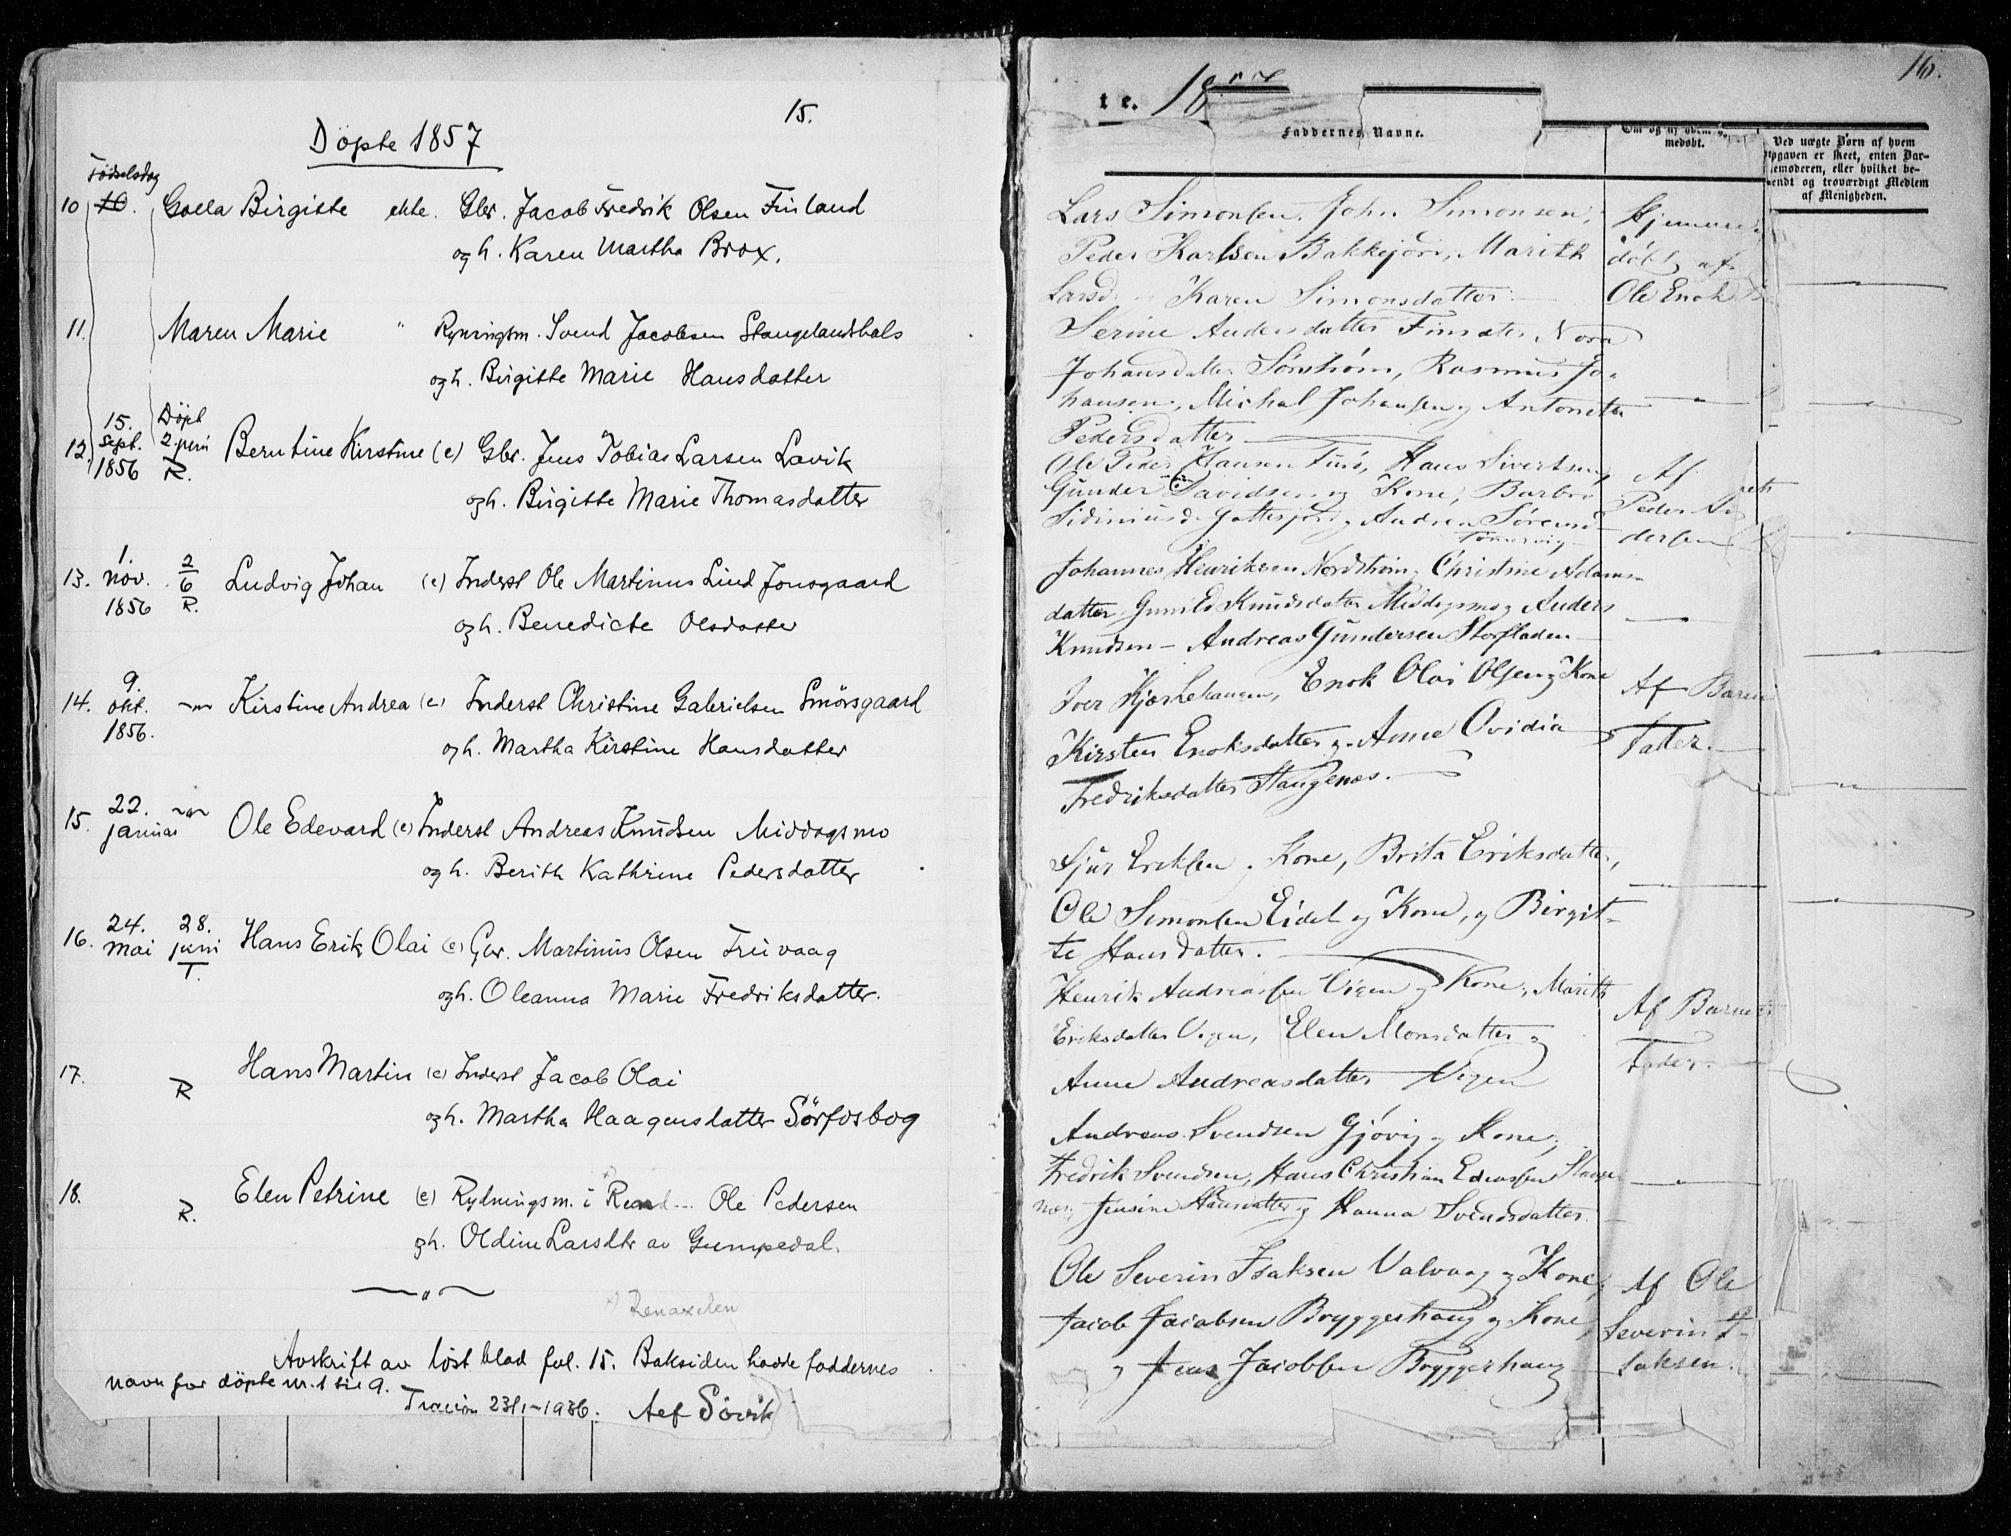 15.
Döpte 1857
Födselsdag
10 10. Goella Birgitte ekte. Gbr. Jacob Fredrik Olsen Finland
og h. Karen Martha Brox.
11. Maren Marie " Rydningsm. Svend Jacobsen Stangelandshals
og h. Birgitte Marie Hansdatter
12. 15. Sept. 1856 Döpt 2. juni R. Berntine Kirstine (e) Gbr. Jens Tobias Larsen Lavik
og h. Birgitte Marie Thomasdatter
13. 1. nov. 1856 2/6 R. Ludvig Johan (e) Inderst Ole Martinus Lind Jonsgaard
og h. Benedicte Olsdatter
14. 9. okt. 1856. Kirstine Andrea (e) Inderst Christine Gabrielsen Smörsgaard
og h. Martha Kirstine Hansdatter
15. 22. januar Ole Edevard (e) Inderst Andreas Knudsen Middagsmo
og h. Berith Kathrine Pedersdatter
16. 24. mai 28. juni T. Hans Erik Olai (e) Gbr. Martinus Olsen Treivaag
og h. Oleanna Marie Fredriksdatter.
17. R Hans Martin (e) Inderst Jacob Olai
og h. Martha Haagensdatter Sörfosbog
18. R. Elen Petrine (e) Rydningsm. i Ole Pedersen
og h. Oldine Larsdtr av Gumpedal.
Renaxelen
Avskrift av löst blad fol. 15. Baksiden havde faddernes
navn for döpte nr. 1 til 9.
23/1-1936.
16.
te. 18
Faddernes Navne.
Om og af hvem
medobt.
Ved uægte Børn af hvem
Opgaven er skeet, enten Bar-
nemoderen, eller hvilket be-
kendt og troværdigt Medlem
af Menigheden.
Lars Simonsen, John Simonsen, Hjemme
Peder Karlsen Bakkejord, Marith døbt af
Larsd. Karen Simonsdatter. Ole Enoks
Serine Andersdatter Finsæter, Nora
Johansdatter Sörstrøm, Rasmus Jo-
hansen, Michal Johansen og Antonette
Pedersdatter
Ole Peder Hansen Tusø, Hans Sivertsen, Af
Gunder Davidsen og Kone, Barbro Peder An
Sidiniusd. Gottesfjord og Andrea Sørensd. dersen
Johannes Henriksen Nordstrøm, Christine Adams-
datter, Gunild Knudsdatter Middagsmo og Anders
Knudsen - Andreas Gundersen Storsladen
Iver Kjerlehaugen, Enok Olai Olsen og Kone Af Barne
Kirsten Enoksdatter og Anne Ovidia Fatter.
Fredriksdatter Stangenæs.
Sjur Eriksen og Kone, Brita Eriksdatter,
Ole Simonsen Eidet og Kone, og Birgit-
te Hansdatter.
Henrik Andreassen Vigen og Kone, Marith Af Barnets
Eriksdatter Vigen, Elen Monsdatter og Fader.
Anne Andreasdatter Vigen
Andreas Svendsen Gjøvig og Kone,
Fredrik Svendsen, Hans Christian Edvardsen Stange
næs, Jensine Hansdatter og Hanna Svendsdatter.
Ole Severin Isaksen Valvaag og Kone, Af Ole
Jacob Jacobsen Bryggerhaug og Kone, Severin I-
og Jens Jacobsen Bryggerhaug saksen.